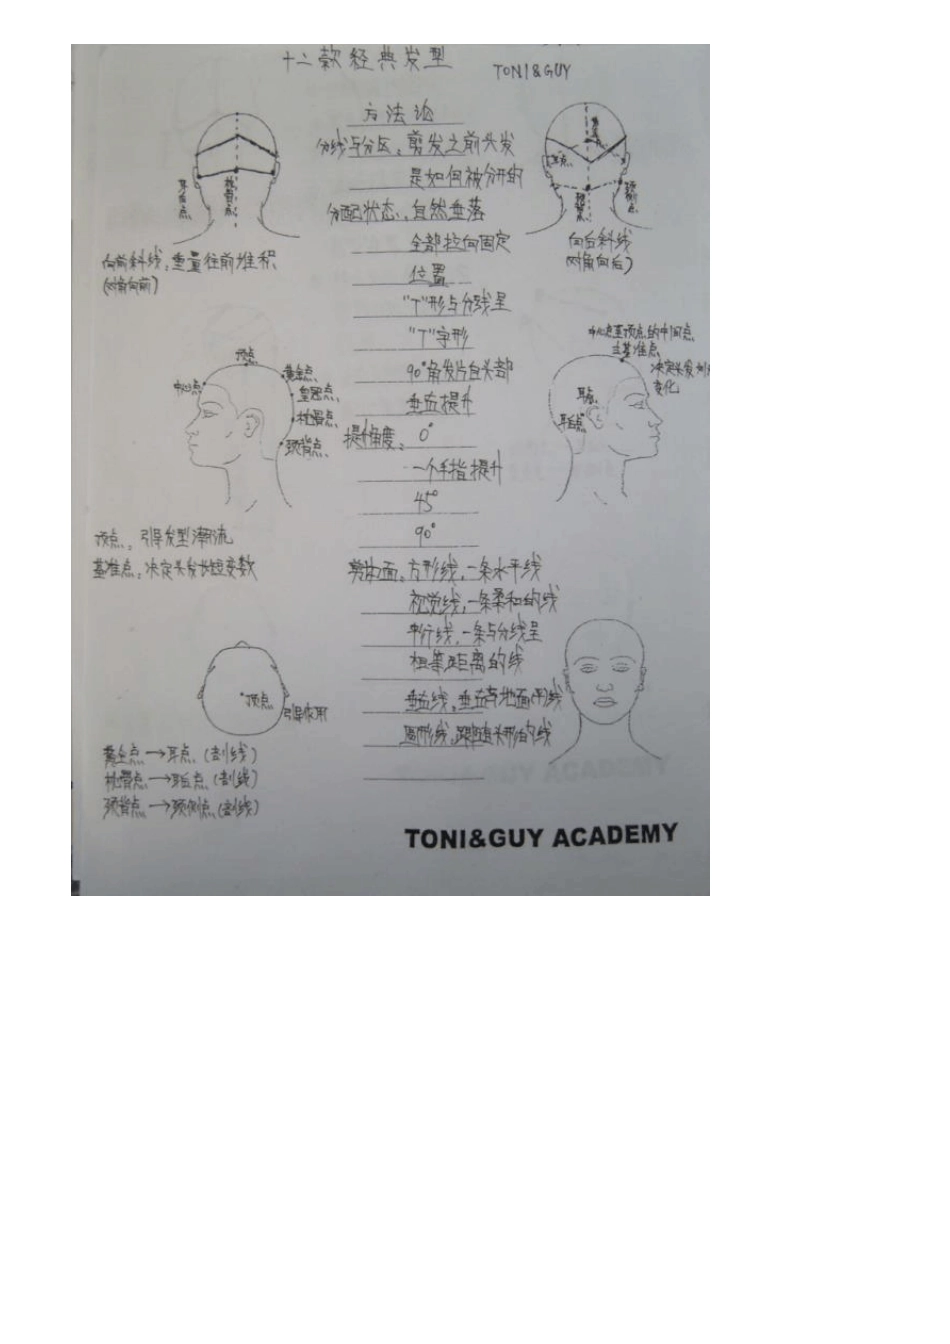 十二款经典发型
TONI&GUY
方法论
分线与分区：剪发之前头发
是如何被分开的
分配状态：自然垂落
全部拉向固定
位置
"T"形与分线呈
"T"字形
90°角发片自头部
垂直提升
提升角度：0°
一个手指提升
45°
90°
剪切面：方形线，一条水平线
视觉线，一条柔和的线
平行线，一条与分线呈
相等距离的线
垂直线，垂直与地面的线
圆形线，跟随头形的线
耳后点
枕骨点
向前斜线，重量往前堆积
(对角向前)
耳点
枕骨点
颈侧点
向后斜线
(对角向后)
顶点
中心点
黄金点
枕骨点
颈背点
中心点至顶点的中间点
基准点
决定头发
变化
耳点
耳后点
顶点：引导发型潮流
基准点：决定头发长短变数
顶点
引导作用
黄金点→耳点 (剖线)
枕骨点→耳后点 (剖线)
颈背点→颈侧点 (剖线)
TONI&GUY ACADEMY